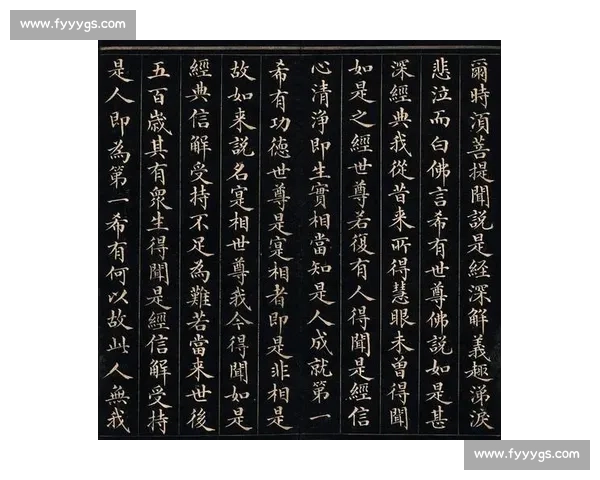 www.fyyygs.com
爾時湏菩提聞說是經深解義趣涕淚
悲泣而白佛言希有世尊佛說如是甚
深經典我從昔来所得慧眼未曽得聞
如是之經世尊若復有人得聞是經信
心清淨即生實相當知是人成就第一
希有功德世尊是寔相者即是非相是
故如来說名寔相世尊我今得聞如是
經典信解受持不足為難若當来世後
五百歲其有衆生得聞是經信解受持
是人即為第一希有何以故此人無我
www.fyyygs.com